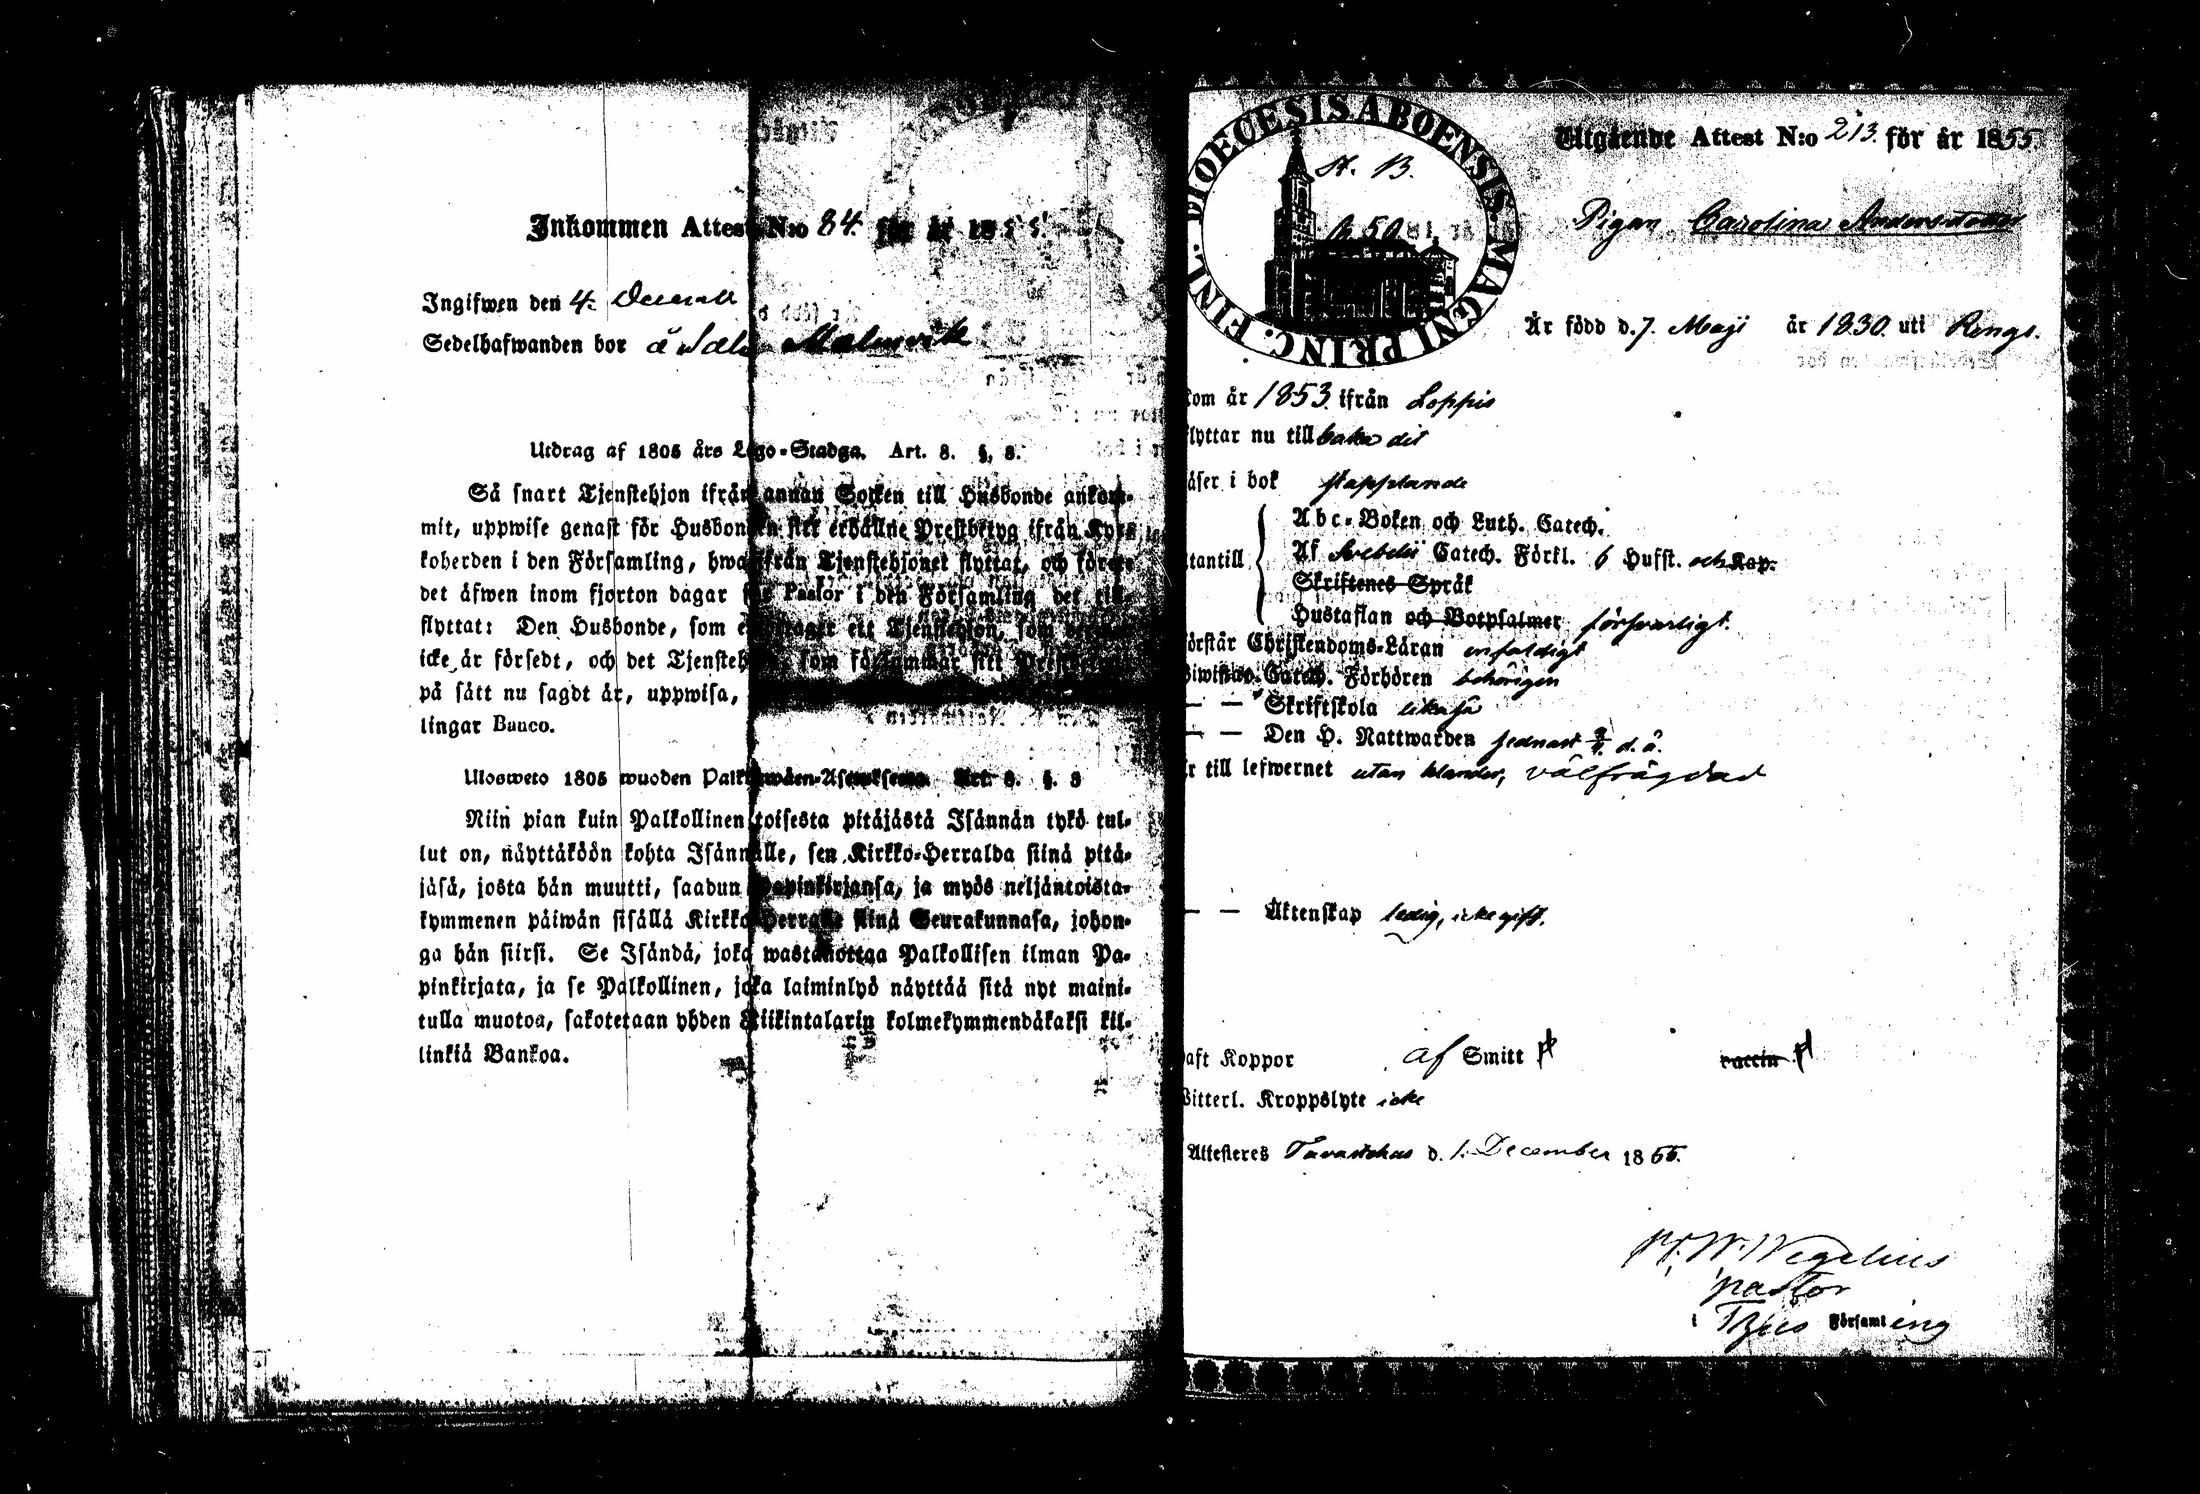 Inkommen Attest N:o 84. för år 1855.
Ingifwen den 4. Decemb
Sedelhafwanden bor å
Utdrag af 1805 års Lego-Stadga. Art. 8. §. 8.
Så snart Tjenstehjon ifrån annan Socken till Husbonde ankom-
mit, uppwise genast för Husbonden sitt erhållne Prestbetyg ifrån Kyr-
koherden i den Församling, hwarifrån Tjenstehjonet flyttat, och förete
det äfwen inom fjorton dagar för Pastor i den Församling det till-
flyttat: Den Husbonde, som ett Tjenstehjon, som
icke är försedt, och det Tjenstehjon, som försummar sitt Prestbetyg
på sätt nu sagdt är, uppwisa,
lingar Banco.
Ulosweto 1805 wuoden Palkkawäen-Asetuksesta Art. 8. §. 8
Niin pian kuin Palkollinen toisesta pitäjästä Isännän tykö tul-
lut on, näyttäköön kohta Isännälle, sen Kirkko-Herralda siinä pitä-
jäsä, josta hän muutti, saadun Papinkirjansa, ja myös neljäntoista-
kymmenen päiwän sisällä Kirkko-Herralle siinä Seurakunnasa, johon-
ga hän siirsi. Se Isändä, joka wastanottaa Palkollisen ilman Pa-
pinkirjata, ja se Palkollinen, joka laiminlyö näyttää sitä nyt maini-
tulla muotoa, sakotetaan yhden Riikintalarin kolmekymmendäkaksi kil-
linkiä Bankoa.
DIOECESIS ABOENSIS. MAGNI PRINC. FINL.
p. 50
Utgående Attest N:o 213. för år 1855.
Pigan Carolina Andersdotter
Är född d. 7. Maji år 1830. uti Rengo.
Kom år 1853. ifrån Loppis
flyttar nu till baka dit
Läser i bok stapplande
Utantill
Abc-Boken och Luth. Catech.
Af Svebelii Catech. Förkl. 6 Hufst. och Kap.
Skriftenes Språk
Hustaflan och Botpsalmer försvarligt.
förstår Christendoms-Läran enfaldigt
Biwistat Catech. Förhören behörigen
— — Skriftskola likaså
— — Den H. Nattwarden sednast d. å.
Är till lefwernet utan klander, välfrägdad
— — Äktenskap ledig, icke gift.
Haft Koppor af Smitt
vaccin
Witterl. Kroppslyte icke
Attesteres Tavastehus d. 1. December 1855.
Wegelius
pastor
i Församling